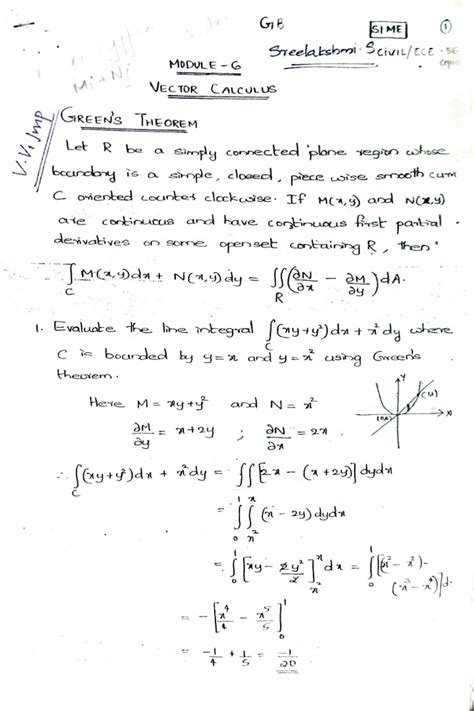 G8
SIME
1
Sreelakshmi. S CIVIL/ECE - 56
copies
MODULE - 6
VECTOR CALCULUS
V.V. Imp
GREEN'S THEOREM
Let R be a simply connected plane region whose
boundary is a simple, closed, piece wise smooth curve
C oriented counter clockwise. If M(x,y) and N(x,y)
are continuous and have continuous first partial
derivatives on some open set containing R, then
∫_C M(x,y)dx + N(x,y)dy = ∬_R (∂N/∂x - ∂M/∂y) dA.
1. Evaluate the line integral ∫_C (xy+y²)dx + x²dy where
C is bounded by y=x and y=x² using Green's
theorem.
Here M = xy+y² and N = x²
∂M/∂y = x+2y ; ∂N/∂x = 2x
Y
(1,1)
(0,0)
X
∴ ∫_C (xy+y²)dx + x²dy = ∬[2x - (x+2y)] dydx
= ∫_0^1 ∫_{x²}^x (x - 2y) dydx
= ∫_0^1 [xy - 2y²/2]_{x²}^x dx = ∫_0^1 [(x² - x²) -
(x³ - x⁴)]d
= -[x⁴/4 - x⁵/5]_0^1
= -1/4 + 1/5 = -1/20